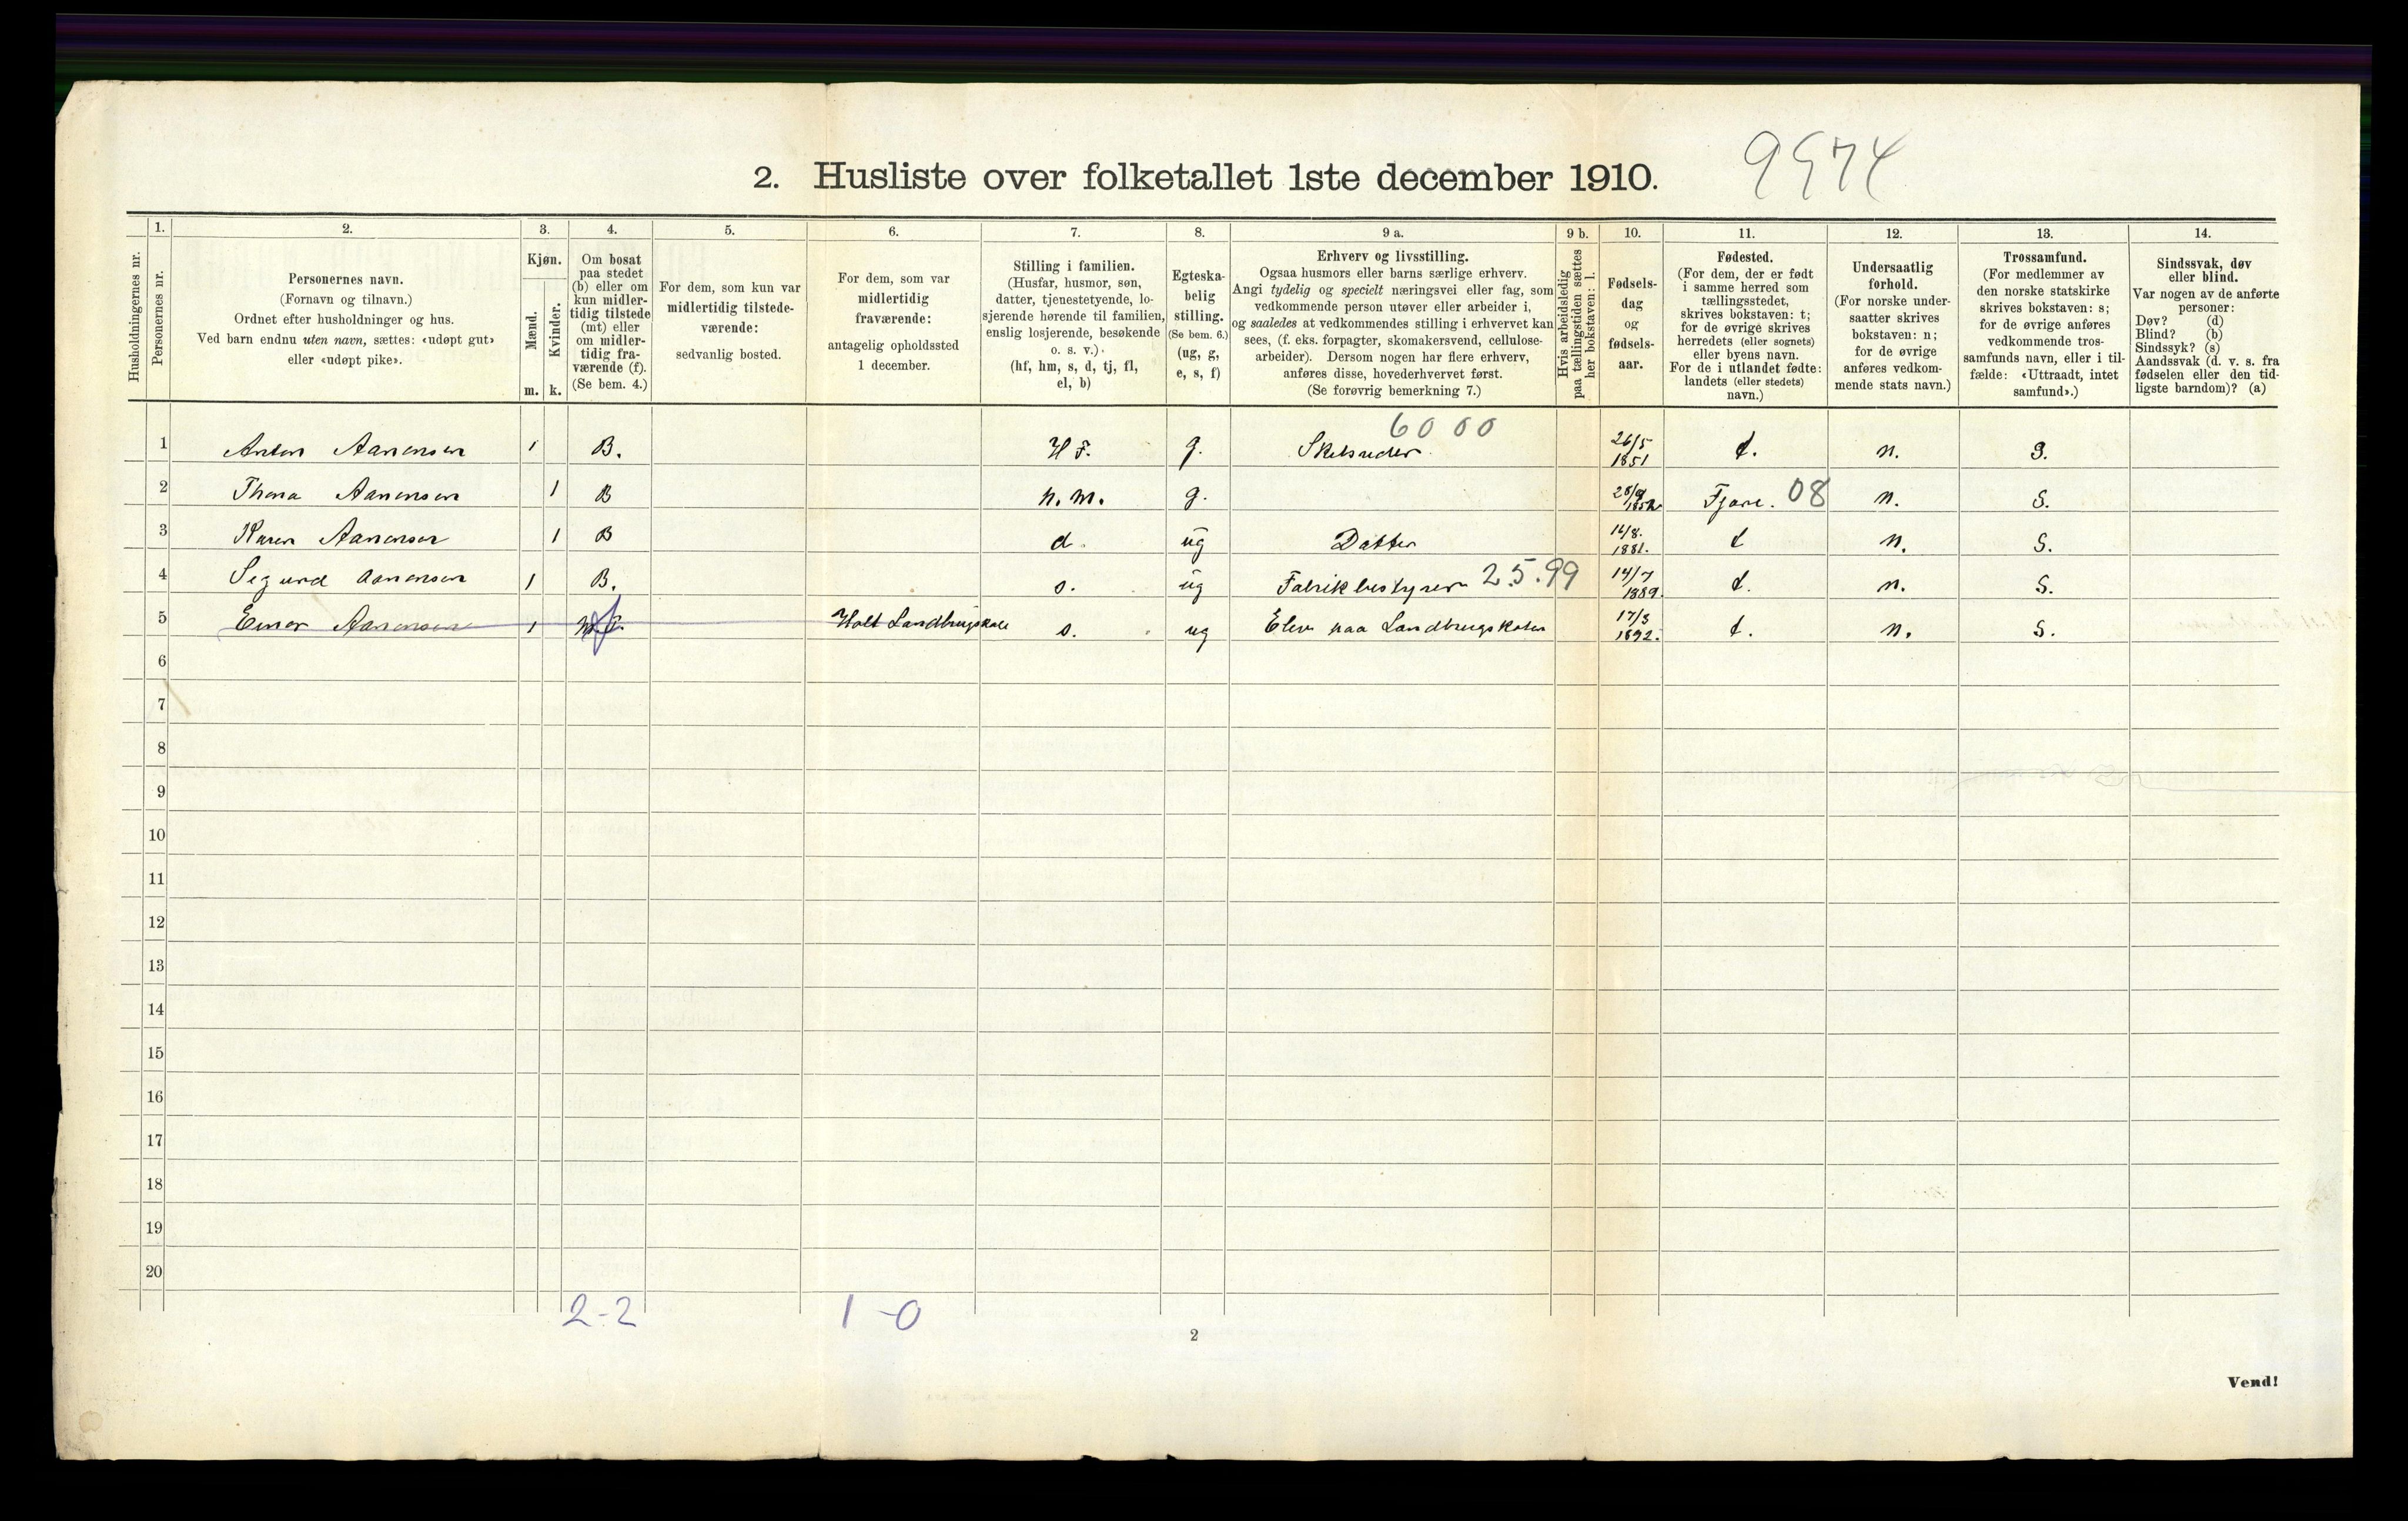 2. Husliste over folketallet 1ste december 1910.
9974
Husholdningernes nr.
1.
Personernes nr.
2.
Personernes navn.
(Fornavn og tilnavn.)
Ordnet efter husholdninger og hus.
Ved barn endnu uten navn, sættes: «udøpt gut»
eller «udøpt pike».
3.
Kjøn.
Mænd.
m.
Kvinder.
k.
4.
Om bosat
paa stedet
(b) eller om
kun midler-
tidig tilstede
(mt) eller
om midler-
tidig fra-
værende (f).
(Se bem. 4.)
5.
For dem, som kun var
midlertidig tilstede-
værende:
sedvanlig bosted.
6.
For dem, som var
midlertidig
fraværende:
antagelig opholdssted
1 december.
7.
Stilling i familien.
(Husfar, husmor, søn,
datter, tjenestetyende, lo-
sjerende hørende til familien,
enslig losjerende, besøkende
o. s. v.).
(hf, hm, s, d, tj, fl,
el, b)
8.
Egteska-
belig
stilling.
(Se bem. 6.)
(ug, g,
e, s, f)
9 a.
Erhverv og livsstilling.
Ogsaa husmors eller barns særlige erhverv.
Angi tydelig og specielt næringsvei eller fag, som
vedkommende person utøver eller arbeider i,
og saaledes at vedkommendes stilling i erhvervet kan
sees, (f. eks. forpagter, skomakersvend, cellulose-
arbeider). Dersom nogen har flere erhverv,
anføres disse, hovederhvervet først.
(Se forøvrig bemerkning 7.)
9 b.
Hvis arbeidsledig
paa tællingstiden sættes
her bokstaven: l.
10.
Fødsels-
dag
og
fødsels-
aar.
11.
Fødested.
(For dem, der er født
i samme herred som
tællingsstedet,
skrives bokstaven: t;
for de øvrige skrives
herredets (eller sognets)
eller byens navn.
For de i utlandet fødte:
landets (eller stedets)
navn.)
12.
Undersaatlig
forhold.
(For norske under-
saatter skrives
bokstaven: n;
for de øvrige
anføres vedkom-
mende stats navn.)
13.
Trossamfund.
(For medlemmer av
den norske statskirke
skrives bokstaven: s;
for de øvrige anføres
vedkommende tros-
samfunds navn, eller i til-
fælde: «Uttraadt, intet
samfund».)
14.
Sindssvak, døv
eller blind.
Var nogen av de anførte
personer:
Døv? (d)
Blind? (b)
Sindssyk? (s)
Aandssvak (d. v. s. fra
fødselen eller den tid-
ligste barndom)? (a)
6000
1 Anton Aanensen 1 B. H F. g. 26/5 1851 t. n. S.
2 Thona Aanensen 1 B h. m. g. Fjære. 08 n. S.
3 Karen Aanensen 1 B d. ug Datter 1881. t n. S.
4 Sigurd Aanensen 1 B. s. ug Fabrikbestyrer 25.99 14/7 1889. t. n. S.
5 Einar Aanensen 1 Holt Landbrugskole s. ug Elev paa Landbrugskolen 17/3 1892. t. n. S.
6
7
8
9
10
11
12
13
14
15
16
17
18
19
20
2-2 1-0
2
Vend!